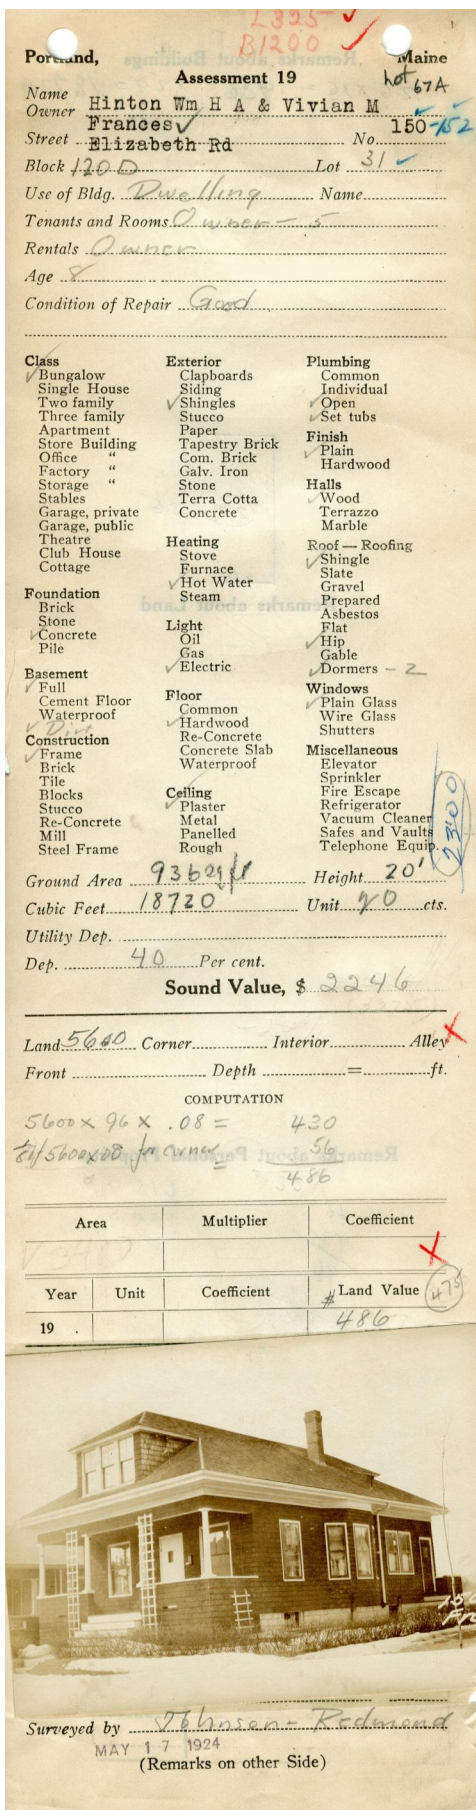 L325 ✓
B1200 ✓
Portland, Maine
Assessment 19
hot 67A
Name
Owner Hinton Wm H A & Vivian M
Frances ✓ 150-152
Street Elizabeth Rd No.
Block 120D Lot 31 ✓
Use of Bldg. Dwelling Name
Tenants and Rooms Owner - 5
Rentals Owner
Age 8
Condition of Repair Good
Class
✓ Bungalow
Single House
Two family
Three family
Apartment
Store Building
Office "
Factory "
Storage "
Stables
Garage, private
Garage, public
Theatre
Club House
Cottage
Foundation
Brick
Stone
✓ Concrete
Pile
Basement
✓ Full
Cement Floor
Waterproof
✓ Dirt
Construction
✓ Frame
Brick
Tile
Blocks
Stucco
Re-Concrete
Mill
Steel Frame
Exterior
Clapboards
Siding
✓ Shingles
Stucco
Paper
Tapestry Brick
Com. Brick
Galv. Iron
Stone
Terra Cotta
Concrete
Heating
Stove
Furnace
✓ Hot Water
Steam
Light
Oil
Gas
✓ Electric
Floor
Common
✓ Hardwood
Re-Concrete
Concrete Slab
Waterproof
Ceiling
✓ Plaster
Metal
Panelled
Rough
Plumbing
Common
Individual
✓ Open
✓ Set tubs
Finish
✓ Plain
Hardwood
Halls
✓ Wood
Terrazzo
Marble
Roof — Roofing
✓ Shingle
Slate
Gravel
Prepared
Asbestos
Flat
✓ Hip
Gable
✓ Dormers - 2
Windows
✓ Plain Glass
Wire Glass
Shutters
Miscellaneous
Elevator
Sprinkler
Fire Escape
Refrigerator
Vacuum Cleaner
Safes and Vaults
Telephone Equip.
2300
Ground Area 936 sq ft Height 20'
Cubic Feet 18720 Unit 20 cts.
Utility Dep.
Dep. 40 Per cent.
Sound Value, $ 2246
Land 5600 Corner Interior Alley
Front Depth = ft.
COMPUTATION
5600 x 96 x .08 = 430
5600x08 for corner = 56
486
Area Multiplier Coefficient
Year Unit Coefficient Land Value 475
19 . # 486
150
Fra
Surveyed by Johnson - Redmond
MAY 17 1924
(Remarks on other Side)